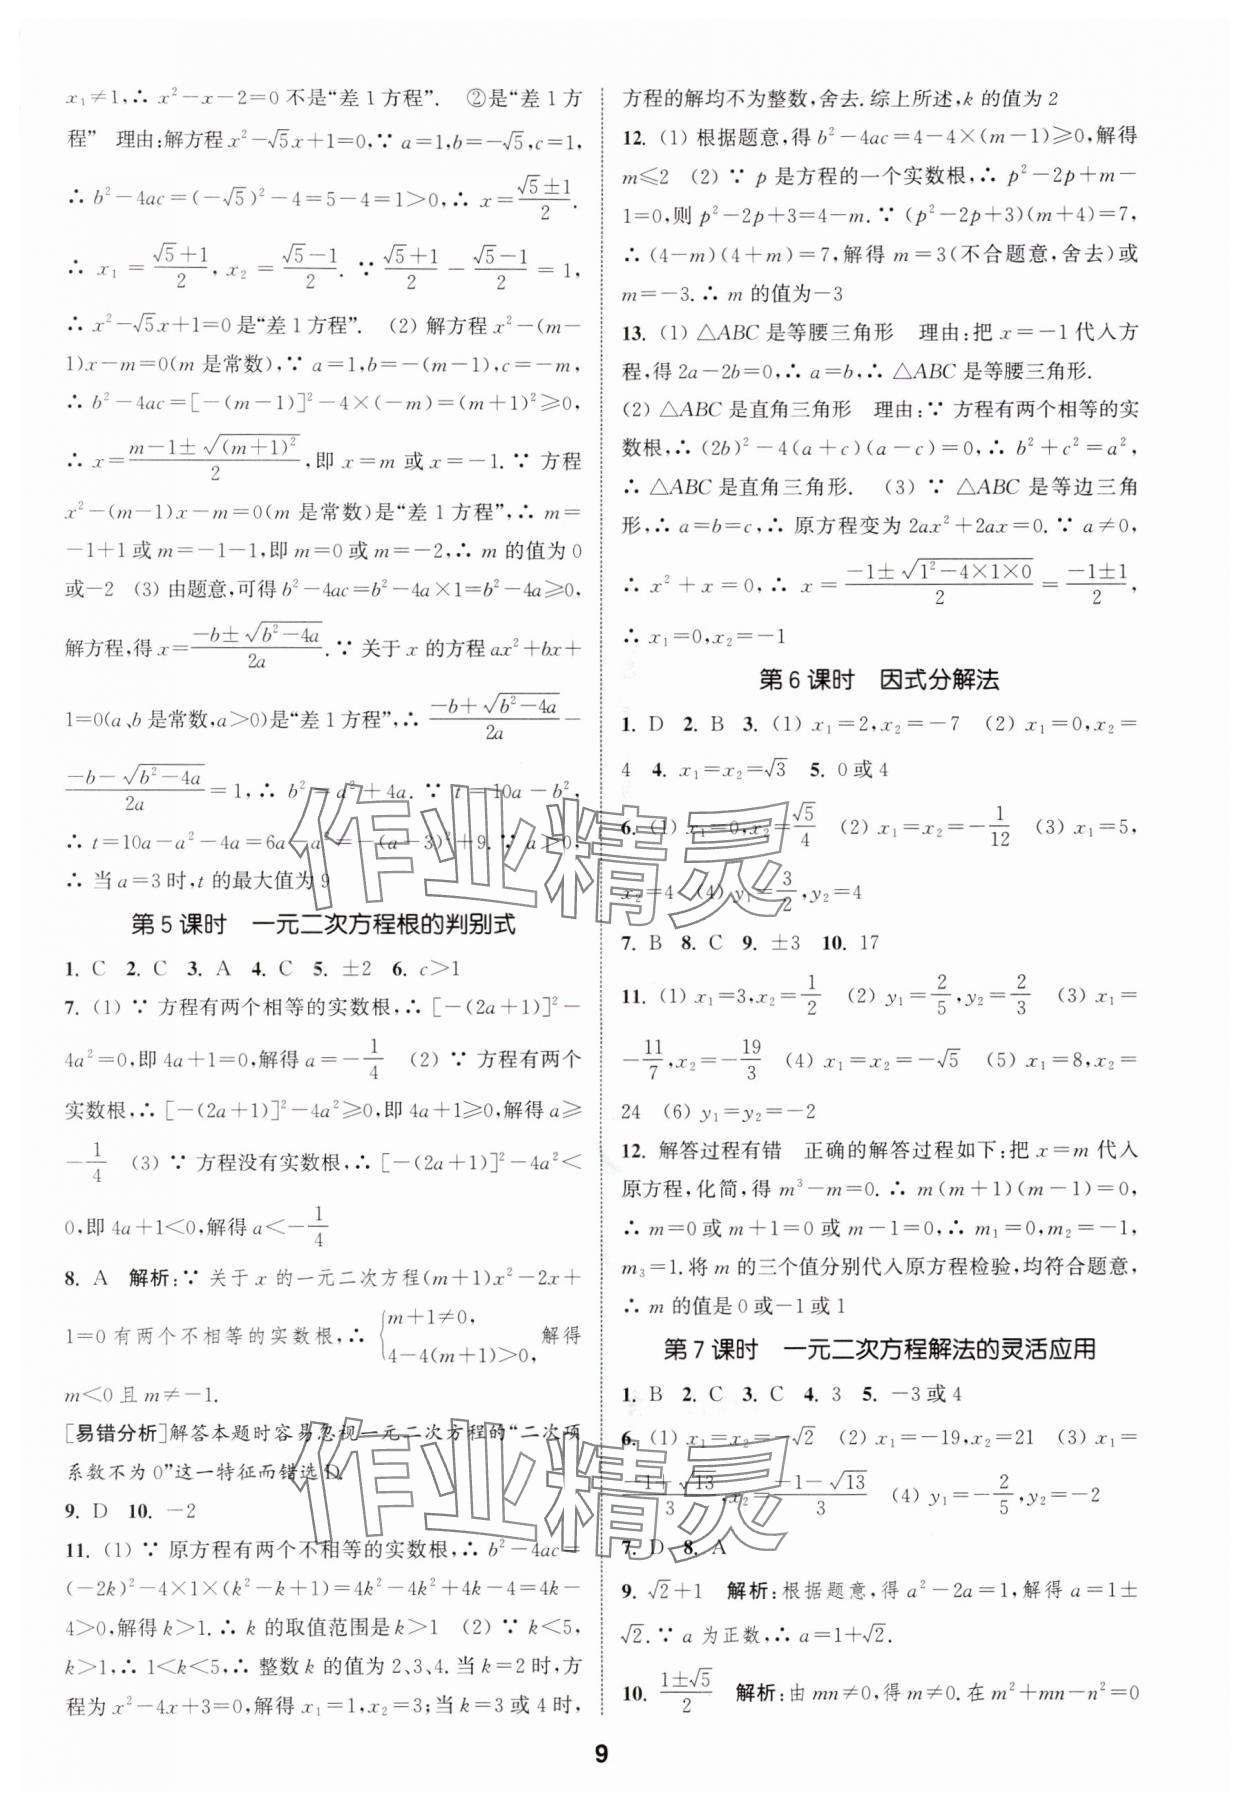 x₁≠1,∴ x²-x-2=0 不是“差 1 方程”. ②是“差 1 方
程” 理由:解方程 x²-√5x+1=0,∵ a=1,b=-√5,c=1,
∴ b²-4ac=(-√5)²-4=5-4=1>0,∴ x=(√5±1)/2.
∴ x₁=(√5+1)/2, x₂=(√5-1)/2. ∵ (√5+1)/2-(√5-1)/2=1,
∴ x²-√5x+1=0 是“差 1 方程”. (2) 解方程 x²-(m-
1)x-m=0(m 是常数),∵ a=1,b=-(m-1),c=-m,
∴ b²-4ac=[-(m-1)]²-4×(-m)=(m+1)²≥0,
∴ x=(m-1±√(m+1)²)/2,即 x=m 或 x=-1.∵ 方程
x²-(m-1)x-m=0(m 是常数)是“差 1 方程”,∴ m=
-1+1 或 m=-1-1,即 m=0 或 m=-2,∴ m 的值为 0
或-2 (3) 由题意,可得 b²-4ac=b²-4a×1=b²-4a≥0,
解方程,得 x=(-b±√(b²-4a))/2a.∵ 关于 x 的方程 ax²+bx+
1=0(a、b 是常数,a>0)是“差 1 方程”,∴ (-b+√(b²-4a))/2a-
(-b-√(b²-4a))/2a=1,∴ b²=a²+4a.∵ t=10a-b²,
∴ t=10a-a²-4a=6a-a²=-(a-3)²+9.∵ a>0,
∴ 当 a=3 时,t 的最大值为 9
第 5 课时 一元二次方程根的判别式
1. C 2. C 3. A 4. C 5. ±2 6. c>1
7. (1) ∵ 方程有两个相等的实数根,∴ [-(2a+1)]²-
4a²=0,即 4a+1=0,解得 a=-1/4 (2) ∵ 方程有两个
实数根,∴ [-(2a+1)]²-4a²≥0,即 4a+1≥0,解得 a≥
-1/4 (3) ∵ 方程没有实数根,∴ [-(2a+1)]²-4a²<
0,即 4a+1<0,解得 a<-1/4
8. A 解析:∵ 关于 x 的一元二次方程(m+1)x²-2x+
1=0 有两个不相等的实数根,∴ {m+1≠0, 4-4(m+1)>0, 解得
m<0 且 m≠-1.
[易错分析]解答本题时容易忽视一元二次方程的“二次项
系数不为 0”这一特征而错选 D.
9. D 10. -2
11. (1) ∵ 原方程有两个不相等的实数根,∴ b²-4ac=
(-2k)²-4×1×(k²-k+1)=4k²-4k²+4k-4=4k-
4>0,解得 k>1.∴ k 的取值范围是 k>1 (2) ∵ k<5,
k>1,∴ 1<k<5,∴ 整数 k 的值为 2、3、4.当 k=2 时,方
程为 x²-4x+3=0,解得 x₁=1,x₂=3;当 k=3 或 4 时,
方程的解均不为整数,舍去.综上所述,k 的值为 2
12. (1) 根据题意,得 b²-4ac=4-4×(m-1)≥0,解得
m≤2 (2) ∵ p 是方程的一个实数根,∴ p²-2p+m-
1=0,则 p²-2p+3=4-m.∵ (p²-2p+3)(m+4)=7,
∴ (4-m)(4+m)=7,解得 m=3(不合题意,舍去)或
m=-3.∴ m 的值为-3
13. (1) △ABC 是等腰三角形 理由:把 x=-1 代入方
程,得 2a-2b=0,∴ a=b,∴ △ABC 是等腰三角形.
(2) △ABC 是直角三角形 理由:∵ 方程有两个相等的实
数根,∴ (2b)²-4(a+c)(a-c)=0,∴ b²+c²=a²,
∴ △ABC 是直角三角形. (3) ∵ △ABC 是等边三角
形,∴ a=b=c,∴ 原方程变为 2ax²+2ax=0.∵ a≠0,
∴ x²+x=0,∴ x=(-1±√(1²-4×1×0))/2=(-1±1)/2,
∴ x₁=0,x₂=-1
第 6 课时 因式分解法
1. D 2. B 3. (1) x₁=2,x₂=-7 (2) x₁=0,x₂=
4 4. x₁=x₂=√3 5. 0 或 4
6. (1) x₁=0,x₂=√5/4 (2) x₁=x₂=-1/12 (3) x₁=5,
x₂=4 (4) y₁=3/2,y₂=4
7. B 8. C 9. ±3 10. 17
11. (1) x₁=3,x₂=1/2 (2) y₁=2/5,y₂=2/3 (3) x₁=
-11/7,x₂=-19/3 (4) x₁=x₂=-√5 (5) x₁=8,x₂=
24 (6) y₁=y₂=-2
12. 解答过程有错 正确的解答过程如下:把 x=m 代入
原方程,化简,得 m³-m=0.∴ m(m+1)(m-1)=0,
∴ m=0 或 m+1=0 或 m-1=0,∴ m₁=0,m₂=-1,
m₃=1.将 m 的三个值分别代入原方程检验,均符合题意,
∴ m 的值是 0 或-1 或 1
第 7 课时 一元二次方程解法的灵活应用
1. B 2. C 3. C 4. 3 5. -3 或 4
6. (1) x₁=x₂=-√2 (2) x₁=-19,x₂=21 (3) x₁=
(-1+√13)/3,x₂=(-1-√13)/3 (4) y₁=-2/5,y₂=-2
7. D 8. A
9. √2+1 解析:根据题意,得 a²-2a=1,解得 a=1±
√2.∵ a 为正数,∴ a=1+√2.
10. (1±√5)/2 解析:由 mn≠0,得 m≠0.在 m²+mn-n²=0
9
作业精灵
作业精灵